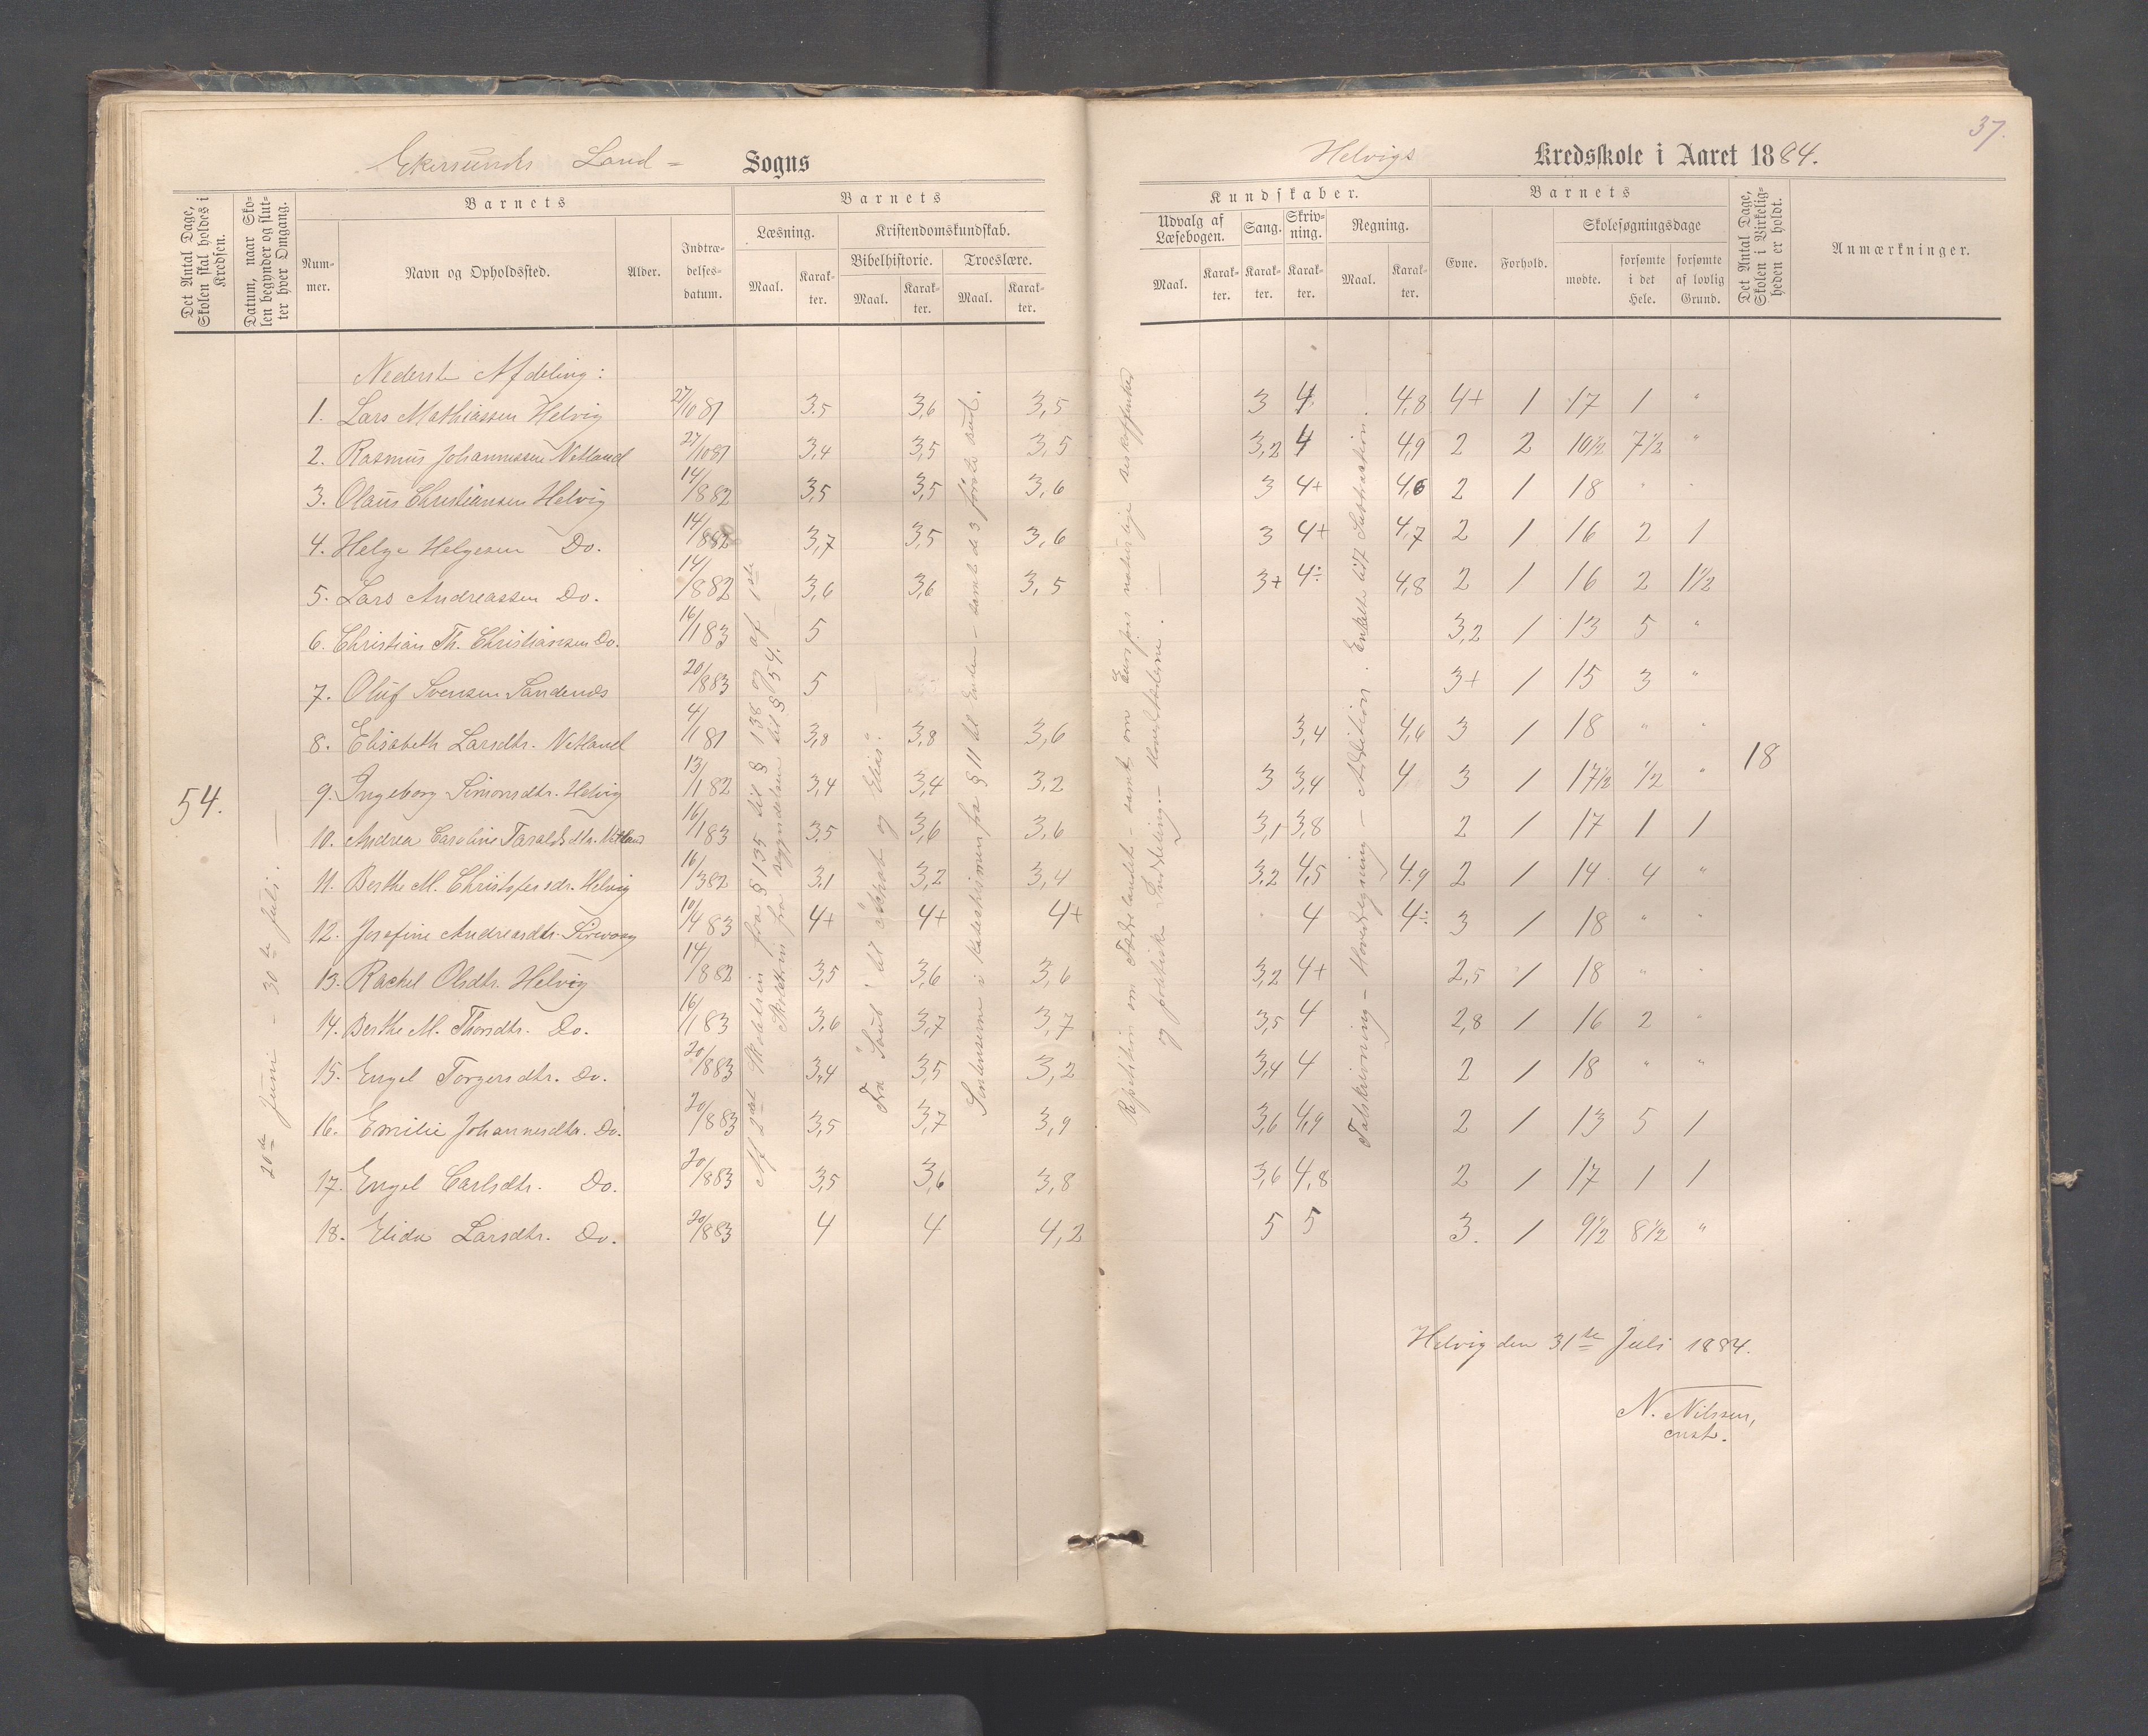 37.
Ekersunds Land = Sogns
Helvigs Kredsskole i Aaret 1884.
Det Antal Dage, Skolen skal holdes i Kredsen.
Datum, naar Skolen begynder og slutter hver Omgang.
Barnets
Nummer.
Navn og Opholdssted.
Alder.
Indtrædelsesdatum.
Barnets
Læsning.
Maal.
Karakter.
Kristendomskundskab.
Bibelhistorie.
Maal.
Karakter.
Troeslære.
Maal.
Karakter.
Kundskaber.
Udvalg af Læsebogen.
Maal.
Karakter.
Sang.
Karakter.
Skrivning.
Karakter.
Regning.
Maal.
Karakter.
Barnets
Evne.
Forhold.
Skolesøgningsdage
mødte.
forsømte i det Hele.
forsømte af lovlig Grund.
Det Antal Dage, Skolen i Virkeligheden er holdt.
Anmærkninger.
Nederste Afdeling:
1. Lars Mathiassen Helvig 27/10 81 3.5 3,6 3,5 3 4. 4,8 4+ 1 17 1 "
2. Rasmus Johannessen Netland 27/10 81 3,4 3,5 3,5 3,2 4 4,9 2 2 10½ 7½ "
3. Olaus Christiansen Helvig 14/8 82 3,5 3,5 3,6 3 4+ 4,6 2 1 18 " "
4. Helge Helgesen Do. 14/8 82 3,7 3,5 3,6 3 4+ 4,7 2 1 16 2 1
5. Lars Andreassen Do. 14/8 82 3,6 3,6 3,5 3+ 4÷ 4,8 2 1 16 2 1½
6. Christian Th. Christiansen Do. 16/1 83 5 3,2 1 13 5 "
7. Oluf Svensen Sandenes 20/8 83 5 3+ 1 15 3 "
8. Elisabeth Larsdtr. Netland 4/1 81 3,8 3,8 3,6 3,4 4,6 3 1 18 " "
9. Ingeborg Simonsdtr. Helvig 13/1 82 3,4 3,4 3,2 3 3,4 4 3 1 17½ ½ "
10. Andrea Caroline Taraldsdtr. Netland 16/1 83 3.5 3,6 3,6 3,1 3,8 2 1 17 1 1
11. Berthe M. Christofersdr. Helvig 16/3 82 3.1 3,2 3,4 3,2 4,5 4.9 2 1 14 4 "
12. Josefine Andreasdtr. Sirevaag 10/4 83 4+ 4+ 4+ 4 4÷ 3 1 18 " "
13. Rachel Olsdtr. Helvig 14/8 82 3,5 3,6 3,6 3,2 4+ 2,5 1 18 " "
14. Berthe M. Thorsdtr. Do. 16/1 83 3.6 3,7 3,7 3,5 4 2,8 1 16 2 "
15. Engel Torgersdtr. Do. 20/8 83 3,4 3,5 3,2 3,4 4 2 1 18 " "
16. Emilie Johannesdtr. Do. 20/8 83 3,5 3,7 3,9 3,6 4,9 2 1 13 5 1
17. Engel Carlsdtr. Do. 20/8 83 3,5 3,6 3,8 3,6 4,8 2 1 17 1 1
18. Elida Larsdtr. Do. 20/8 83 4 4 4,2 5 5 3. 1 9½ 8½ "
54.
20de Juni - 30te Juli. —
Af 2det Skoletrin fra § 135 til § 138 og af 1ste Skoletrin fra begyndelsen til § 54.
Fra Saul til Akab og Elias. —
Sentenserne i Katekismen fra § 11 til Enden - samt de 3 første
Repetition om Fædrelandet - samt om Europas naturlige
og politiske Inddeling. - Hovedstæderne. —
Talskrivning - Hovedregning - Addition. Enkelte lidt Subtraktion.
18
Helvig den 31te Juli 1884.
N. Nilssen,
const.